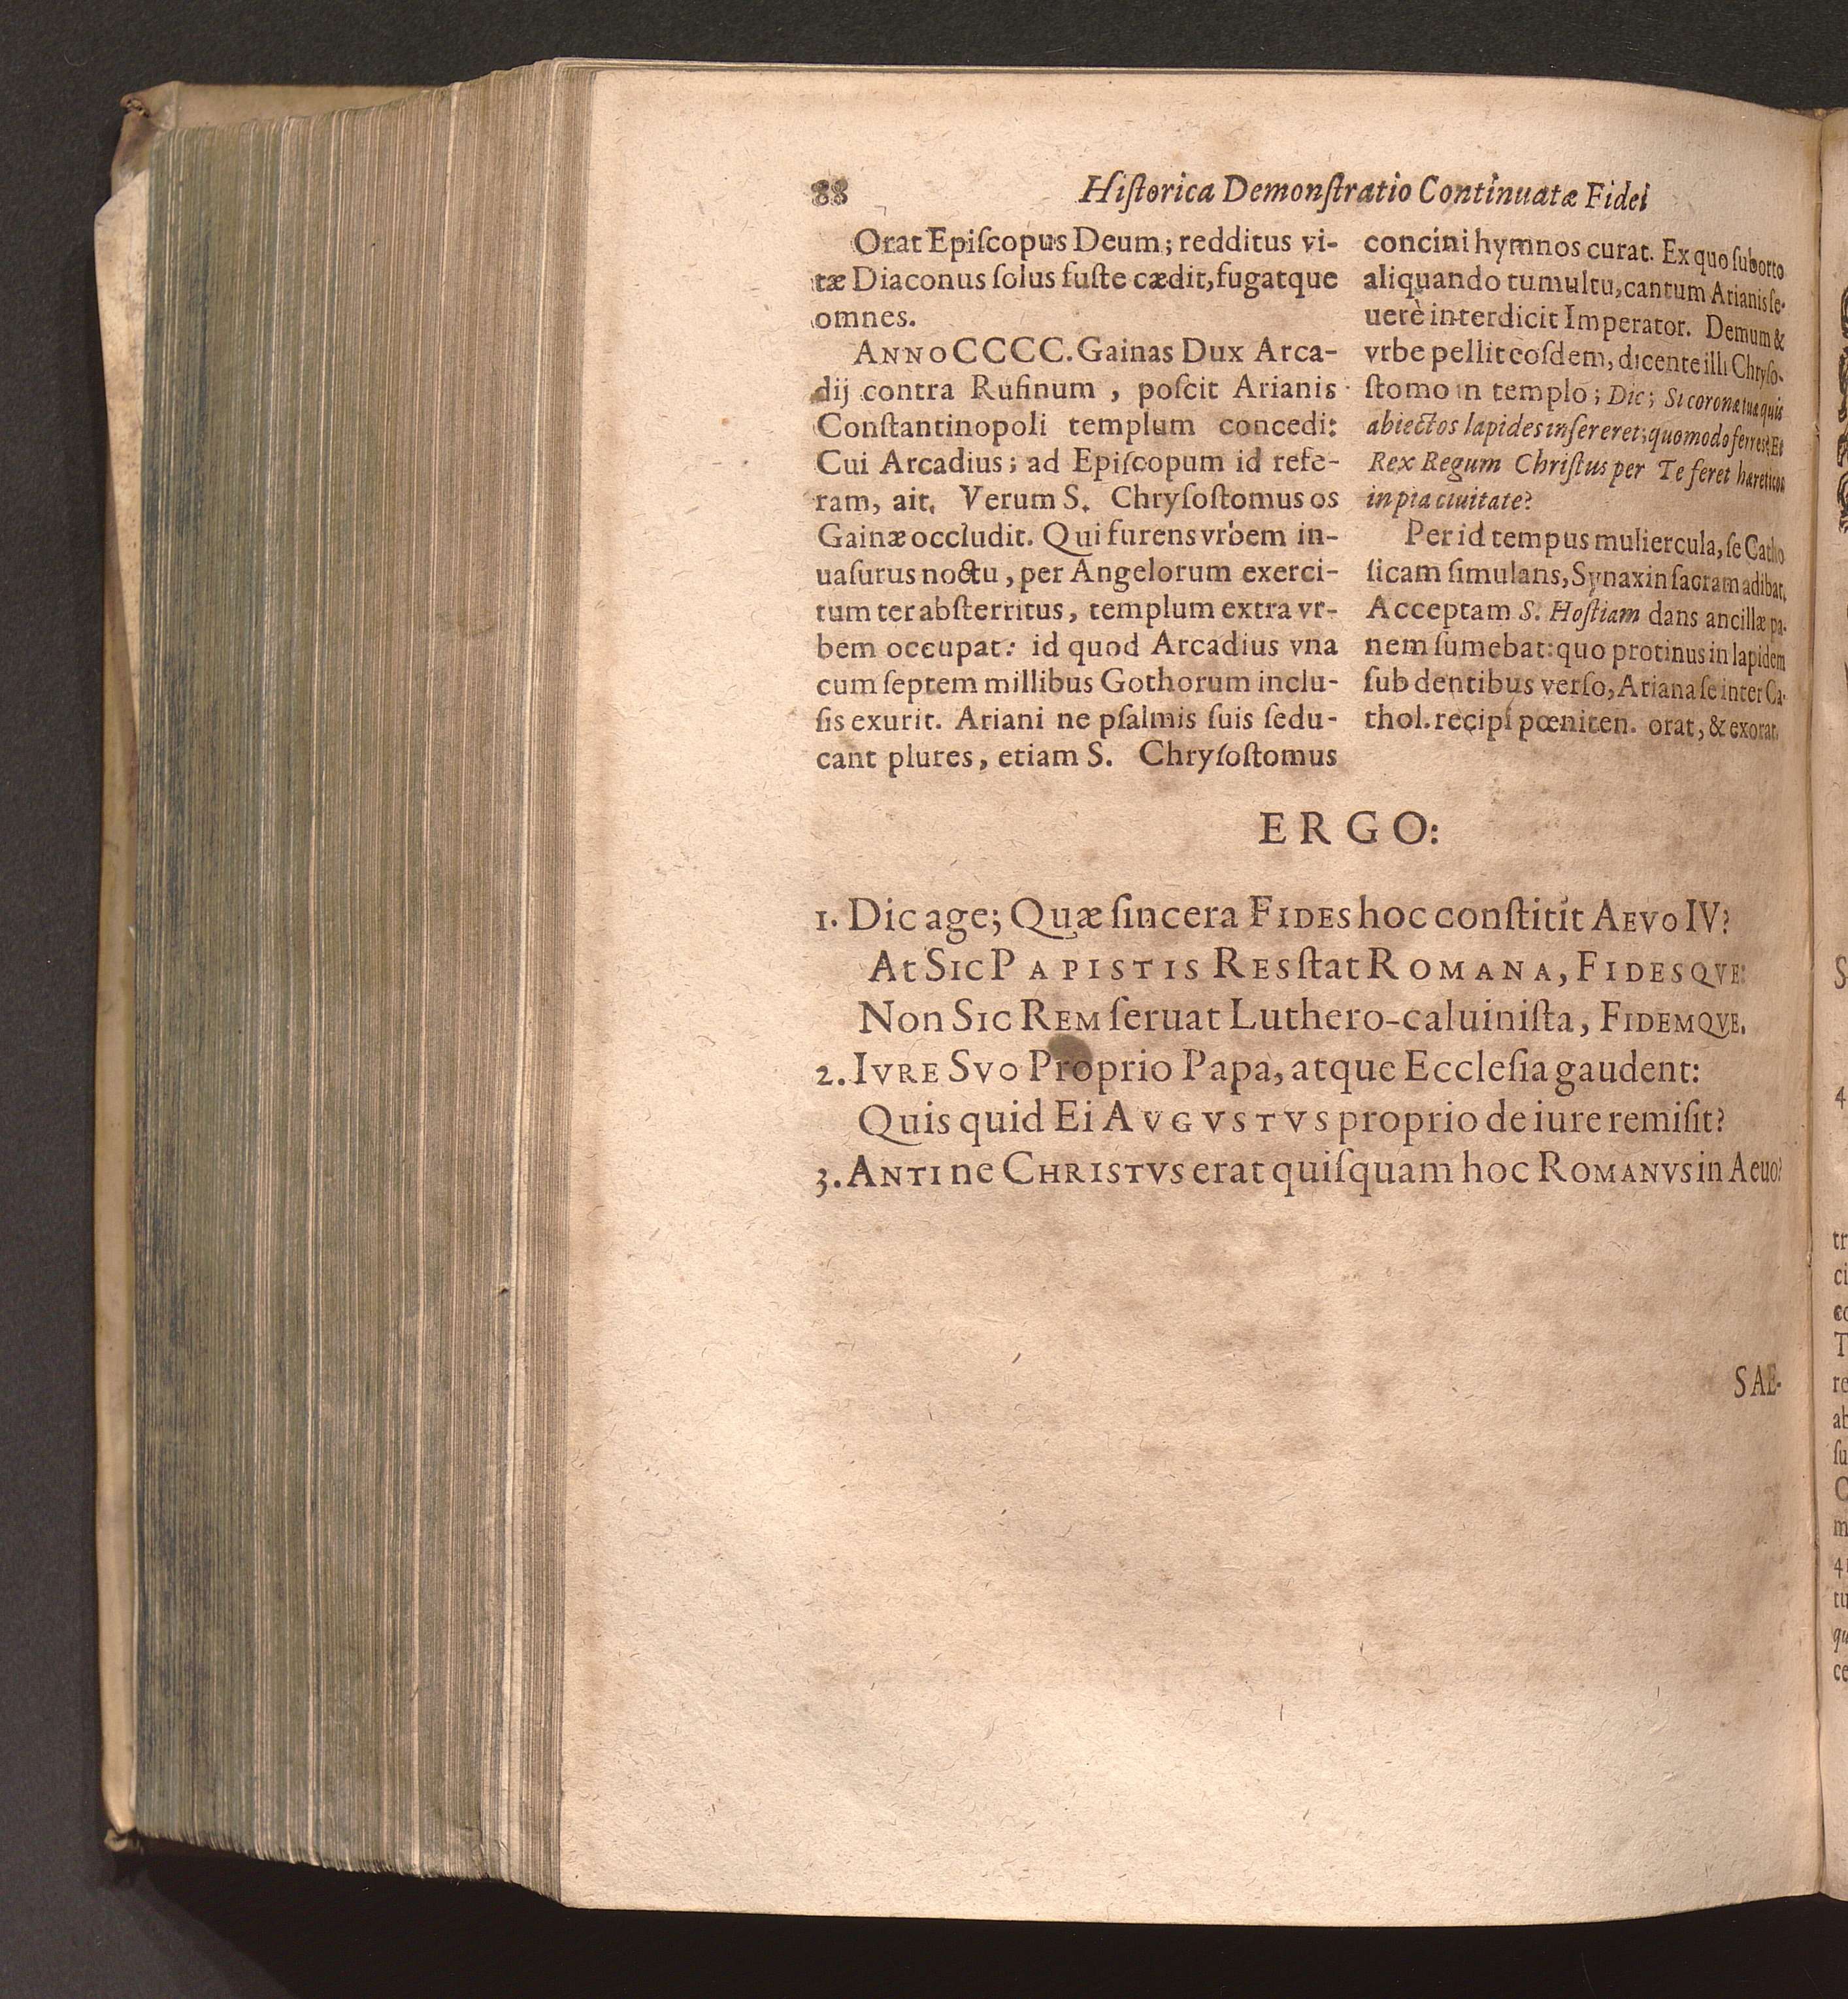 88
Hiſtorica Demonſtratio Continuatæ Fidei
Orat Epiſcopus Deum; redditus vi-
tæ Diaconus ſolus fuſte cædit, fugatque
omnes.
ANNO CCCC. Gainas Dux Arca-
dij contra Rufinum, poſcit Arianis
Conſtantinopoli templum concedi:
Cui Arcadius; ad Epiſcopum id refe-
ram, ait. Verum S. Chryſoſtomus os
Gainæ occludit. Qui furens vrbem in-
uaſurus noctu, per Angelorum exerci-
tum ter abſterritus, templum extra vr-
bem occupat: id quod Arcadius vna
cum ſeptem millibus Gothorum inclu-
ſis exurit. Ariani ne pſalmis ſuis ſedu-
cant plures, etiam S. Chryſoſtomus
concini hymnos curat. Ex quo ſuborto
aliquando tumultu, cantum Arianis ſe-
uerè interdicit Imperator. Demum &
vrbe pellit eoſdem, dicente illi Chryſo-
ſtomo in templo; Dic; Si coronæ tuæ quis
abiectos lapides inſereret; quomodo ferres? Et
Rex Regum Chriſtus per Te feret hæreticos
in pia ciuitate?
Per id tempus muliercula, ſe Catho
licam ſimulans, Synaxin ſacram adibat.
Acceptam S. Hoſtiam dans ancillæ pa-
nem ſumebat: quo protinus in lapidem
ſub dentibus verſo, Ariana ſe inter Ca-
thol. recipi pœniten. orat, & exorat.
ERGO:
1. Dic age; Quæ ſincera FIDES hoc conſtitit AEVO IV?
At SIC PAPISTIS RES ſtat ROMANA, FIDESQVE:
Non SIC REM ſeruat Luthero-caluiniſta, FIDEMQVE.
2. IVRE SVO Proprio Papa, atque Eccleſia gaudent:
Quis quid Ei AVGVSTVS proprio de iure remiſit?
3. ANTI ne CHRISTVS erat quiſquam hoc ROMANVS in Aeuo?
SAE-